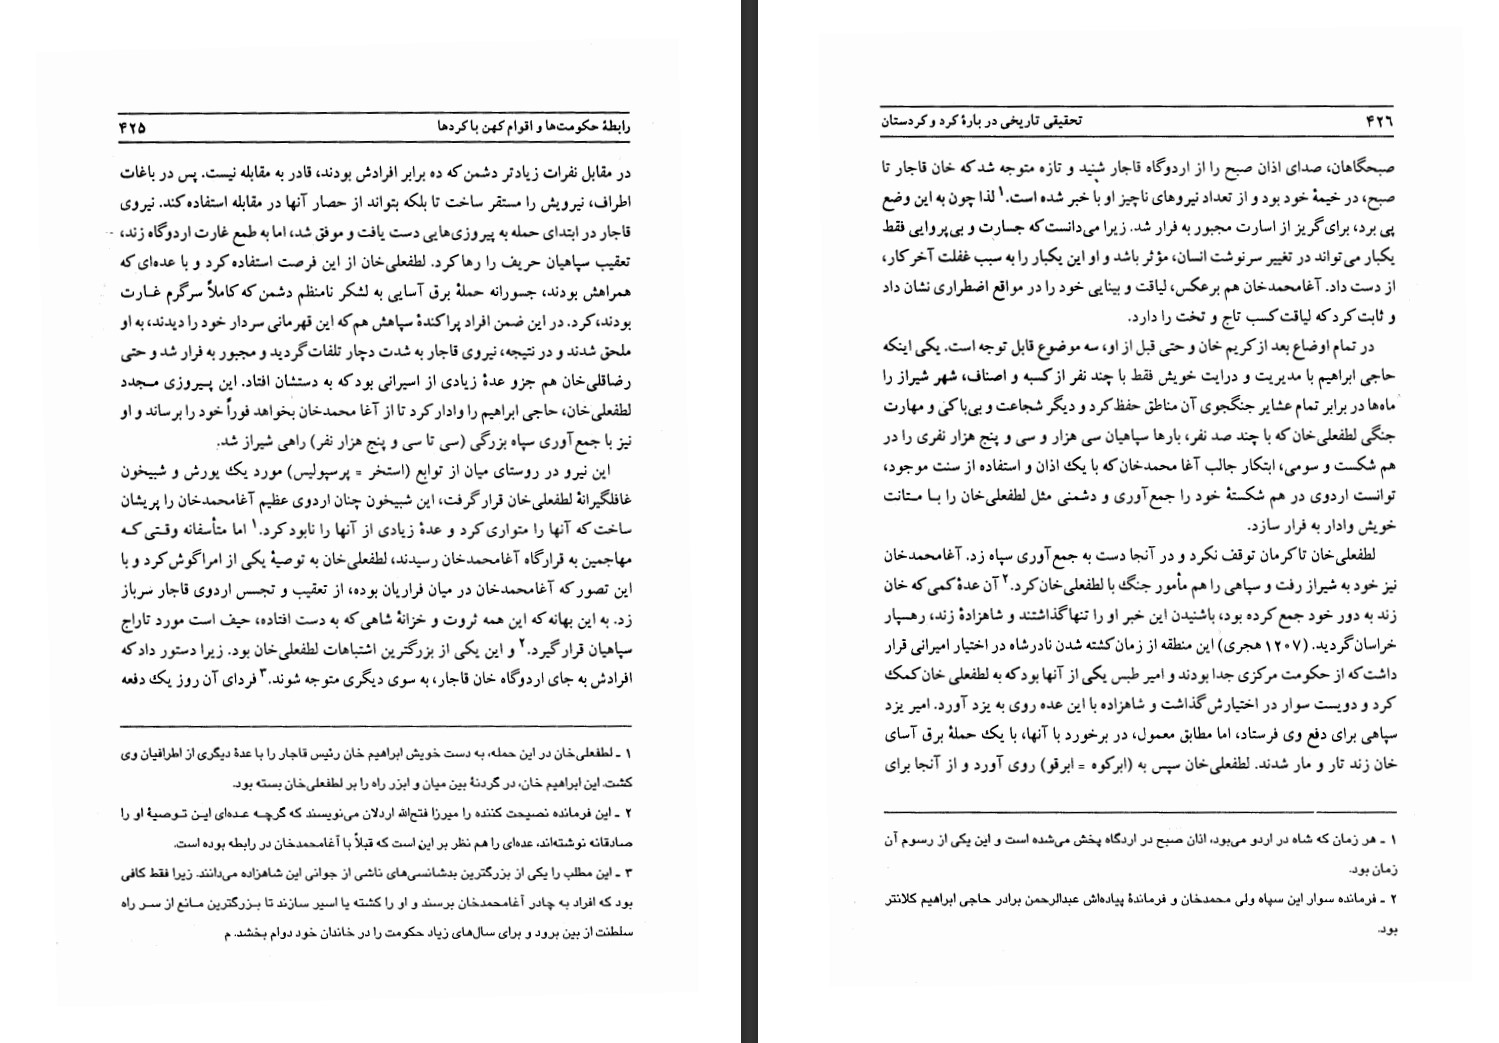 رابطهٔ حکومت‌ها و اقوام کهن با کردها ۴۲۵
در مقابل نفرات زیادتر دشمن که ده برابر افرادش بودند، قادر به مقابله نیست. پس در باغات
اطراف، نیرویش را مستقر ساخت تا بلکه بتواند از حصار آنها در مقابله استفاده کند. نیروی
قاجار در ابتدای حمله به پیروزی‌هایی دست یافت و موفق شد، اما به طمع غارت اردوگاه زند،
تعقیب سپاهیان حریف را رها کرد. لطفعلی‌خان از این فرصت استفاده کرد و با عده‌ای که
همراهش بودند، جسورانه حملهٔ برق آسایی به لشکر نامنظم دشمن که کاملاً سرگرم غارت
بودند، کرد. در این ضمن افراد پراکندهٔ سپاهش هم که این قهرمانی سردار خود را دیدند، به او
ملحق شدند و در نتیجه، نیروی قاجار به شدت دچار تلفات گردید و مجبور به فرار شد و حتی
رضاقلی‌خان هم جزو عدهٔ زیادی از اسیرانی بود که به دستشان افتاد. این پیروزی مجدد
لطفعلی‌خان، حاجی ابراهیم را وادار کرد تا از آغا محمدخان بخواهد فوراً خود را برساند و او
نیز با جمع‌آوری سپاه بزرگی (سی تا سی و پنج هزار نفر) راهی شیراز شد.
این نیرو در روستای میان از توابع (استخر = پرسپولیس) مورد یک یورش و شبیخون
غافلگیرانهٔ لطفعلی‌خان قرار گرفت، این شبیخون چنان اردوی عظیم آغامحمدخان را پریشان
ساخت که آنها را متواری کرد و عدهٔ زیادی از آنها را نابود کرد.۱ اما متأسفانه وقتی که
مهاجمین به قرارگاه آغامحمدخان رسیدند، لطفعلی‌خان به توصیهٔ یکی از امرا گوش کرد و با
این تصور که آغامحمدخان در میان فراریان بوده، از تعقیب و تجسس اردوی قاجار سرباز
زد. به این بهانه که این همه ثروت و خزانهٔ شاهی که به دست افتاده، حیف است مورد تاراج
سپاهیان قرار گیرد.۲ و این یکی از بزرگترین اشتباهات لطفعلی‌خان بود. زیرا دستور داد که
افرادش به جای اردوگاه خان قاجار، به سوی دیگری متوجه شوند.۳ فردای آن روز یک دفعه
۱ ـ لطفعلی‌خان در این حمله، به دست خویش ابراهیم خان رئیس قاجار را با عدهٔ دیگری از اطرافیان وی
کشت. این ابراهیم خان، در گردنهٔ بین میان و ابزر راه را بر لطفعلی‌خان بسته بود.
۲ ـ این فرمانده نصیحت کننده را میرزا فتح‌الله اردلان می‌نویسند که گرچه عده‌ای این توصیهٔ او را
صادقانه نوشته‌اند، عده‌ای را هم نظر بر این است که قبلاً با آغامحمدخان در رابطه بوده است.
۳ ـ این مطلب را یکی از بزرگترین بدشانسی‌های ناشی از جوانی این شاهزاده می‌دانند. زیرا فقط کافی
بود که افراد به چادر آغامحمدخان برسند و او را کشته یا اسیر سازند تا بزرگترین مانع از سر راه
سلطنت از بین برود و برای سال‌های زیاد حکومت را در خاندان خود دوام بخشد. م
۴۲۶ تحقیقی تاریخی در بارهٔ کرد و کردستان
صبحگاهان، صدای اذان صبح را از اردوگاه قاجار شنید و تازه متوجه شد که خان قاجار تا
صبح، در خیمهٔ خود بود و از تعداد نیروهای ناچیز او با خبر شده است.۱ لذا چون به این وضع
پی برد، برای گریز از اسارت مجبور به فرار شد. زیرا می‌دانست که جسارت و بی‌پروایی فقط
یکبار می‌تواند در تغییر سرنوشت انسان، مؤثر باشد و او این یکبار را به سبب غفلت آخر کار،
از دست داد. آغامحمدخان هم برعکس، لیاقت و بینایی خود را در مواقع اضطراری نشان داد
و ثابت کرد که لیاقت کسب تاج و تخت را دارد.
در تمام اوضاع بعد از کریم خان و حتی قبل از او، سه موضوع قابل توجه است. یکی اینکه
حاجی ابراهیم با مدیریت و درایت خویش فقط با چند نفر از کسبه و اصناف، شهر شیراز را
ماه‌ها در برابر تمام عشایر جنگجوی آن مناطق حفظ کرد و دیگر شجاعت و بی‌باکی و مهارت
جنگی لطفعلی‌خان که با چند صد نفر، بارها سپاهیان سی هزار و سی و پنج هزار نفری را در
هم شکست و سومی، ابتکار جالب آغا محمدخان که با یک اذان و استفاده از سنت موجود،
توانست اردوی در هم شکستهٔ خود را جمع‌آوری و دشمنی مثل لطفعلی‌خان را با متانت
خویش وادار به فرار سازد.
لطفعلی‌خان تا کرمان توقف نکرد و در آنجا دست به جمع‌آوری سپاه زد. آغامحمدخان
نیز خود به شیراز رفت و سپاهی را هم مأمور جنگ با لطفعلی‌خان کرد.۲ آن عدهٔ کمی که خان
زند به دور خود جمع کرده بود، باشنیدن این خبر او را تنها گذاشتند و شاهزادهٔ زند، رهسپار
خراسان گردید. (۱۲۰۷ هجری) این منطقه از زمان کشته شدن نادرشاه در اختیار امیرانی قرار
داشت که از حکومت مرکزی جدا بودند و امیر طبس یکی از آنها بود که به لطفعلی خان کمک
کرد و دویست سوار در اختیارش گذاشت و شاهزاده با این عده روی به یزد آورد. امیر یزد
سپاهی برای دفع وی فرستاد، اما مطابق معمول، در برخورد با آنها، با یک حملهٔ برق آسای
خان زند تار و مار شدند. لطفعلی‌خان سپس به (ابرکوه = ابرقو) روی آورد و از آنجا برای
۱ ـ هر زمان که شاه در اردو می‌بود، اذان صبح در اردگاه پخش می‌شده است و این یکی از رسوم آن
زمان بود.
۲ ـ فرمانده سوار این سپاه ولی محمدخان و فرماندهٔ پیاده‌اش عبدالرحمن برادر حاجی ابراهیم کلانتر
بود.